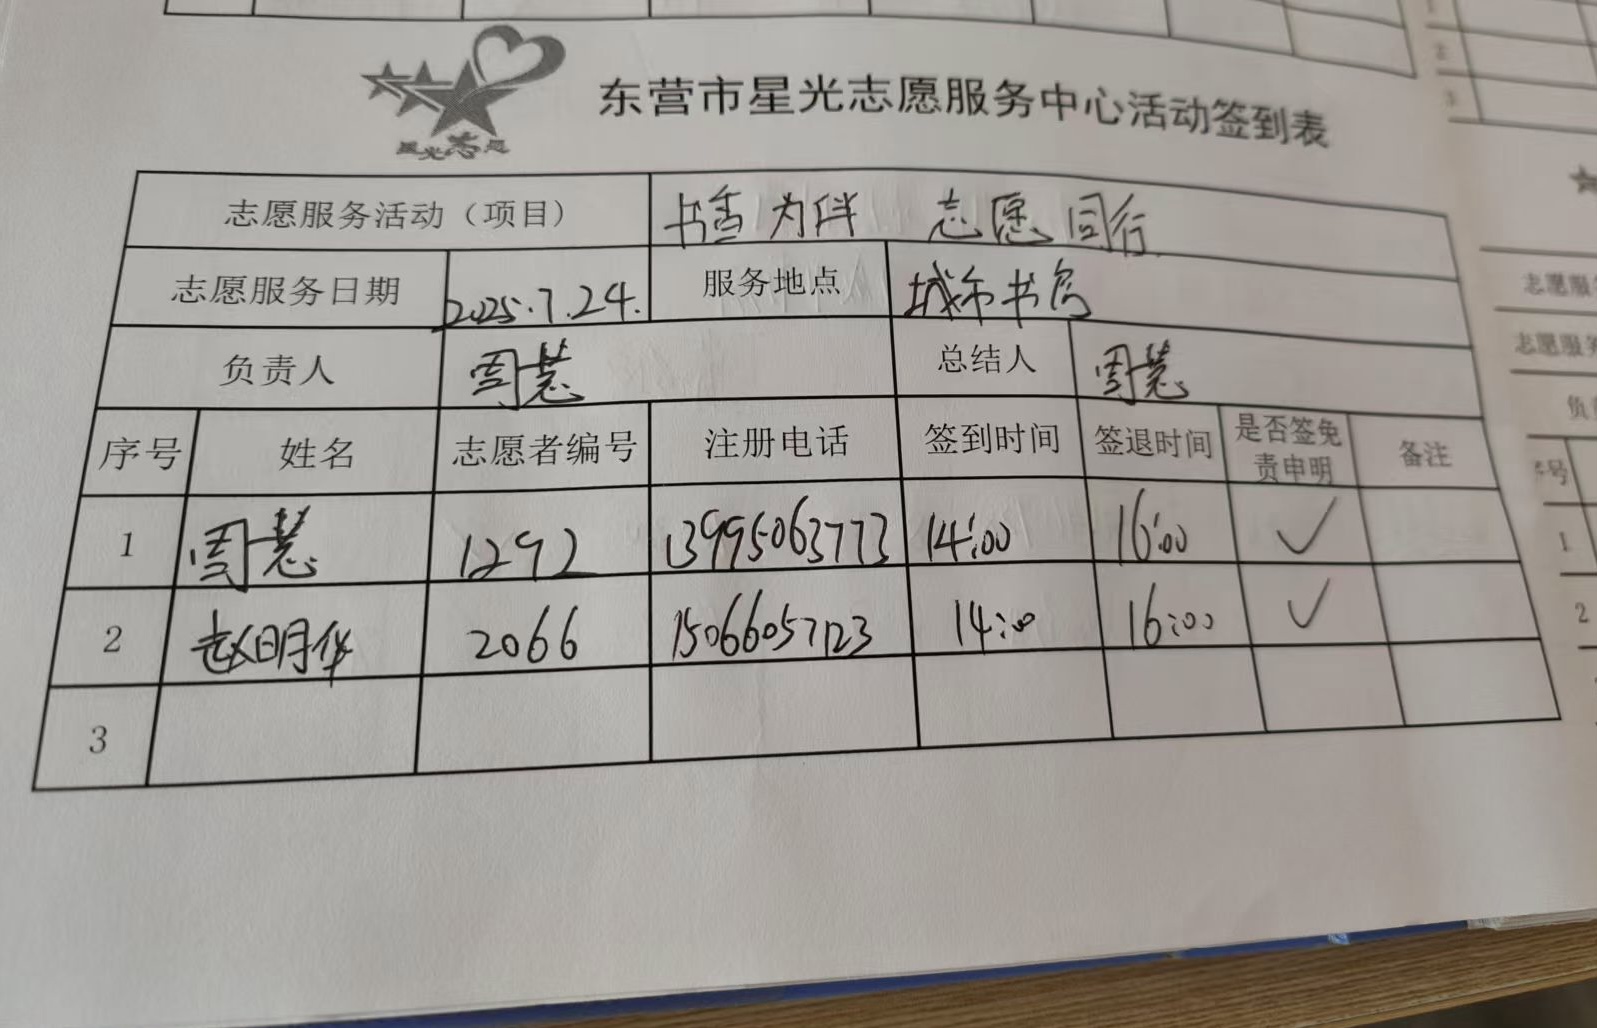 星光志愿
东营市星光志愿服务中心活动签到表
志愿服务活动（项目） 书香为伴 志愿同行
志愿服务日期 2025.7.24. 服务地点 城市书房
负责人 周慧 总结人 周慧
序号 姓名 志愿者编号 注册电话 签到时间 签退时间 是否签免责申明 备注
1 周慧 1292 13995063773 14:00 16:00 ✓
2 赵明华 2066 15066057123 14:00 16:00 ✓
3
志愿服
志愿服务
负
序号
1
2